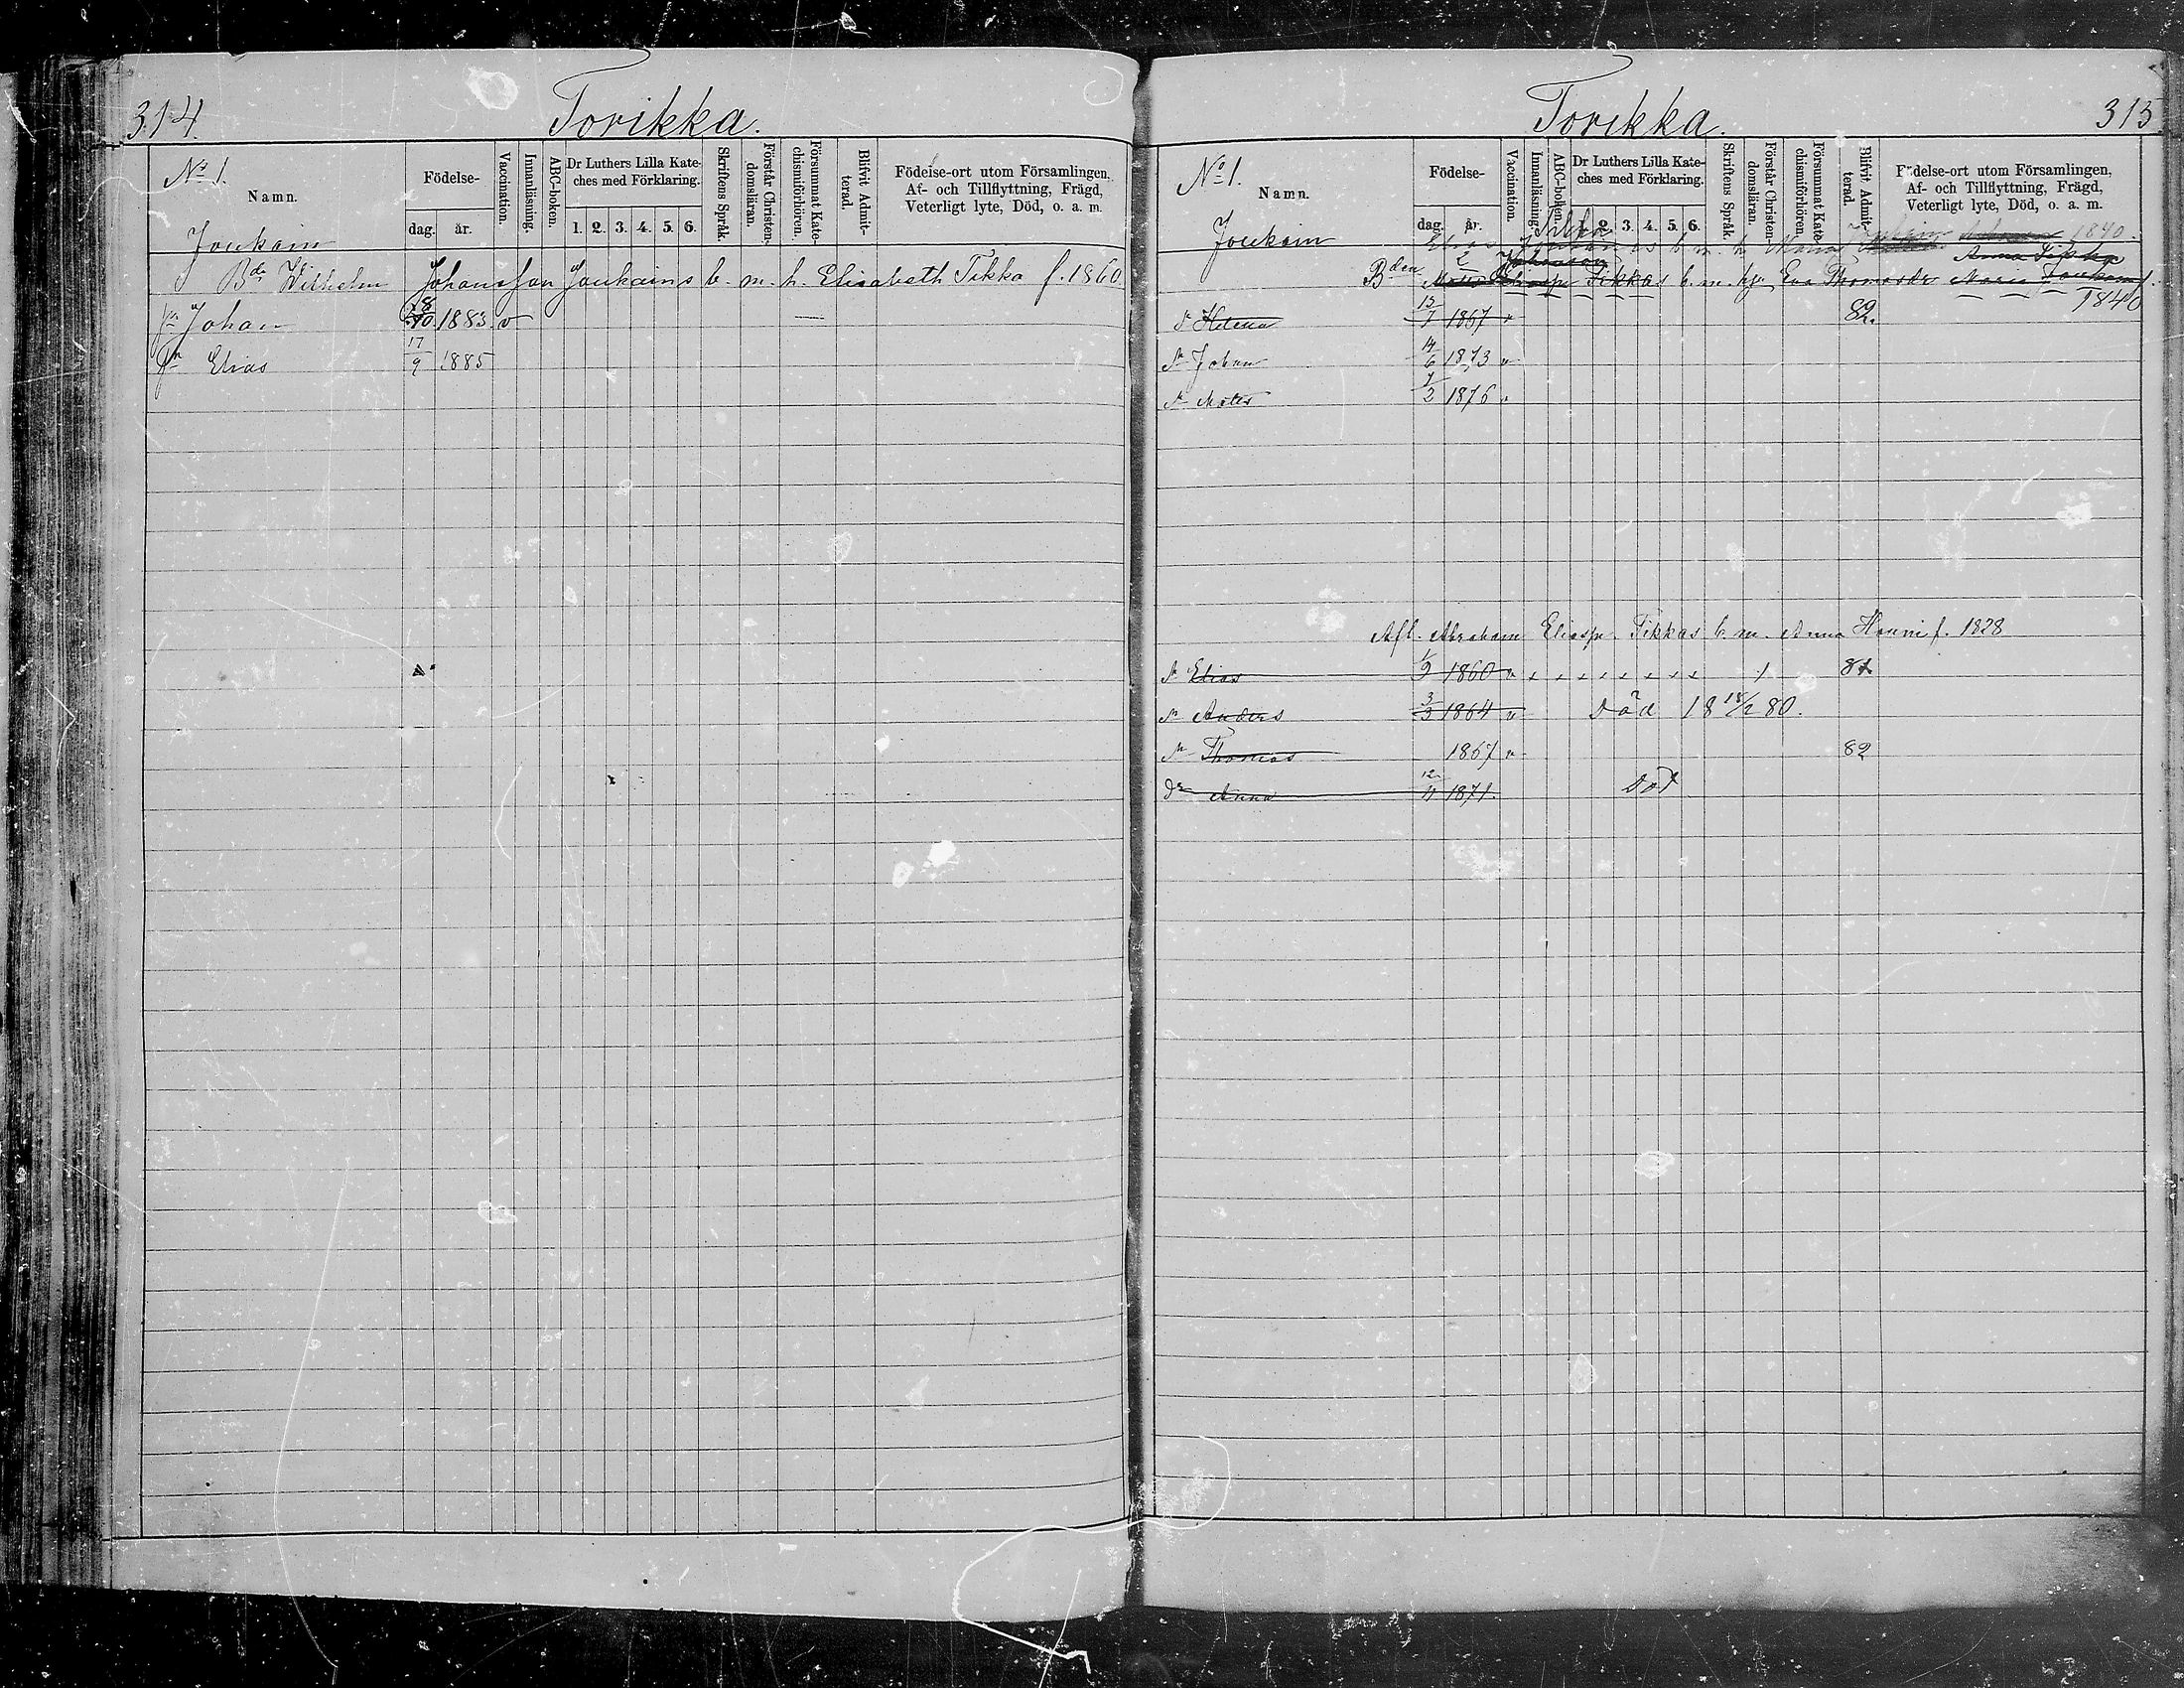 314.
Torikka.
No 1.
Namn.
Födelse-
dag.
år.
Vaccination.
Innanläsning.
ABC-boken.
Dr Luthers Lilla Kate-
ches med Förklaring.
1. 2. 3. 4. 5. 6.
Skriftens Språk.
Förstår Christen-
domsläran.
Försummat Kate-
chismiförhören.
Blifvit Admit-
terad.
Födelse-ort utom Församlingen,
Af- och Tillflyttning, Frägd,
Veterligt lyte, Död, o. a. m.
Joukain
Bdn Wilhelm Johansson Joukains b. m. h. Elisabeth Tikka f. 1860.
Sn Johan 10 1883 v
Sn Elias 17/9 1885
Torikka.
315
No 1.
Namn.
Födelse-
dag.
år.
Vaccination.
Innanläsning.
ABC-boken.
Dr Luthers Lilla Kate-
ches med Förklaring.
2. 3. 4. 5. 6.
Skriftens Språk.
Förstår Christen-
domsläran.
Försummat Kate-
chismiförhören.
Blifvit Admit-
terad.
Födelse-ort utom Församlingen,
Af- och Tillflyttning, Frägd,
Veterligt lyte, Död, o. a. m.
Joukain
Tikka
Elias b. m. h. Maria 1840.
Johansson
Bden Tikkas b. m. hu Eva Thomasdr Maria Joukain f.
1840
d Helena 15/7 1867 v 82.
Sn Johan 14/6 1873 v
Sn Mats 7/2 1876 v
Afl. Abraham Eliass. Tikkas b. m. Anna Hanni f. 1828
Sn Elias 1/9 1860 v x x x x x x x x 1 81
Sn Anders 3/3 1864 v Död 18 18/2 80.
Sn Thomas 1867 v 82
Dr Anna 12/11 1871. Död